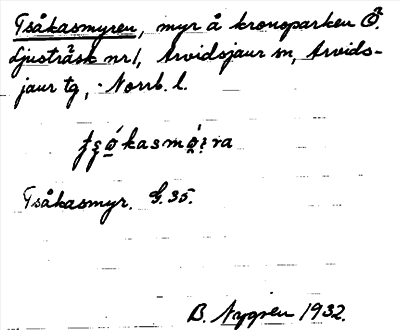 Tsåkasmyren, myr å kronoparken Ö.
Ljusträsk nr 1, Arvidsjaur sn, Arvids-
jaur tg, Norrb. l.
Tsåkasmyr. G. 35.
B. Nygren 1932.